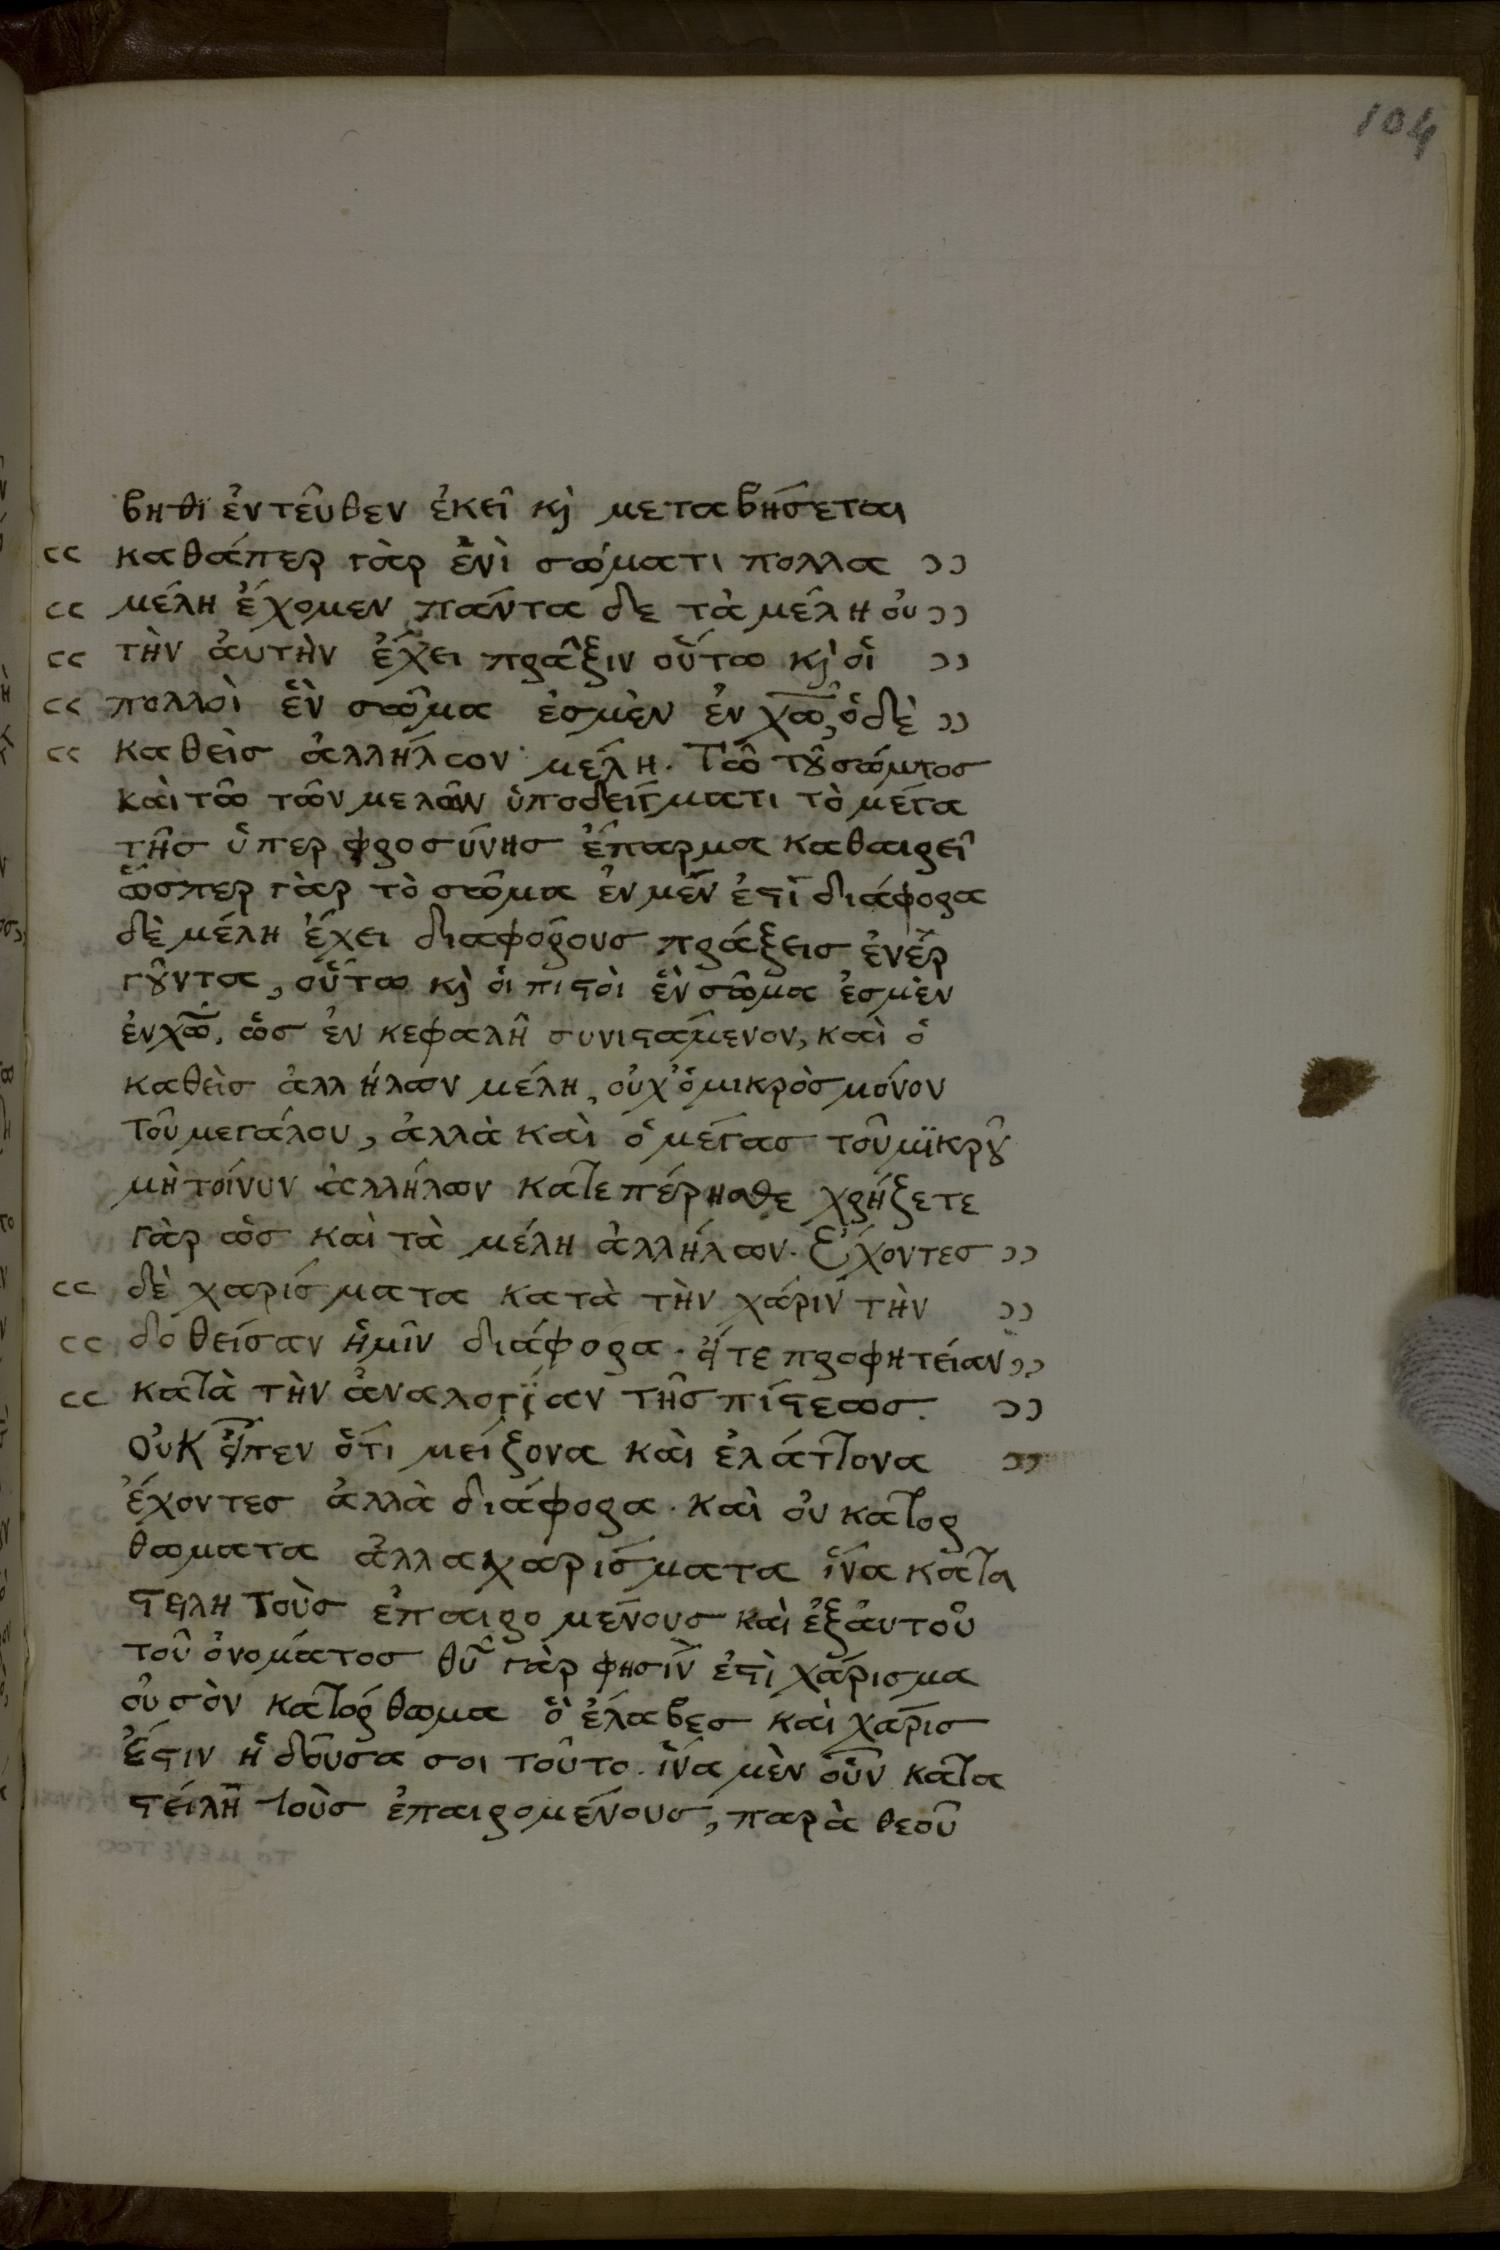 104
βηθϊ ἐντεῦθεν ἐκεῖ κὶ μεταβήσεται
‹‹ καθάπερ γὰρ ἑνὶ σώματι πολλα ››
‹‹ μέλη ἔχομεν πάντα δε τὰ μέλη οὐ ››
‹‹ τὴν ἀυτὴν ἔχει πρᾶξιν οὕτω κὶ οἱ ››
‹‹ πολλοὶ ἓν σῶμα ἐσμὲν ἐν χω̅, ὁ δὲ ››
‹‹ καθεὶσ ἀλλήλων μέλη. Τῶ τȣ̃ σώμτοσ
καὶ τῶ τῶν μελῶν ὑποδείγματι τὸ μέγα
τῆσ ὑπερφροσύνησ ἔπαρμα καθαιρεῖ
ὥσπερ γὰρ τὸ σῶμα ἐν μὲν ἐϛὶ διάφορα
δὲ μέλη ἔχει διαφόρουσ πράξεισ ἐνέρ
γȣ̃ντα, οὕτω κὶ οἱ πιϛοὶ ἓν σῶμα ἐσμὲν
ἐν χω̅, ὡσ ἐν κεφαλῆ συνιϛάμενον, καὶ ὁ
καθεὶσ ἀλλήλων μέλη, οὐχ ὁ μικρὸσ μόνον
τοῦ μεγάλου, ἀλλὰ καὶ ὁ μέγασ τοῦ μϊκρȣ̃
μὴ τοίνυν ἀλλήλων κατεπέρησθε χρήζετε
γὰρ ὡσ καὶ τὰ μέλη ἀλλήλων. Ἔχοντεσ ››
‹‹ δὲ χαρίσματα κατὰ τὴν χάριν τὴν ››
‹‹ δοθεῖσαν ἡμῖν διάφορα. εἴτε προφητείαν ››
‹‹ κατὰ τὴν ἀναλογΐαν τῆσ πίϛεωσ. ››
Οὐκ εἶπεν ὅτι μείζονα καὶ ἐλάττονα ››
ἔχοντεσ ἀλλὰ διάφορα. καὶ οὐ κατορ
θωματα ἀλλα χαρίσματα ἵνα κατα
ϛείλη τοὺσ ἐπαιρομένουσ καὶ ἐξ ἀυτοῦ
τοῦ ὀνόματοσ θυ̅ γὰρ φησὶν ἐϛὶ χάρισμα
οὐ σὸν κατόρθωμα ὃ ἔλαβεσ καὶ χάρισ
ἔϛιν ἡ δοῦσα σοι τοῦτο. ἵνα μὲν οὖν κατα
ϛείλῆ τοὺσ ἐπαιρομένουσ, παρὰ θεοῦ